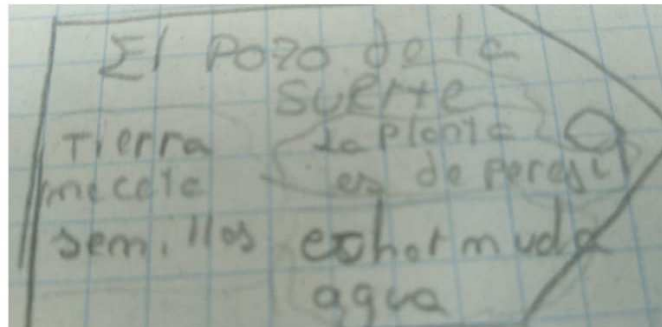 El Pozo de la
suerte
Tierra
mecete
semillos
la planta
es de peresil
eshor muda
agua